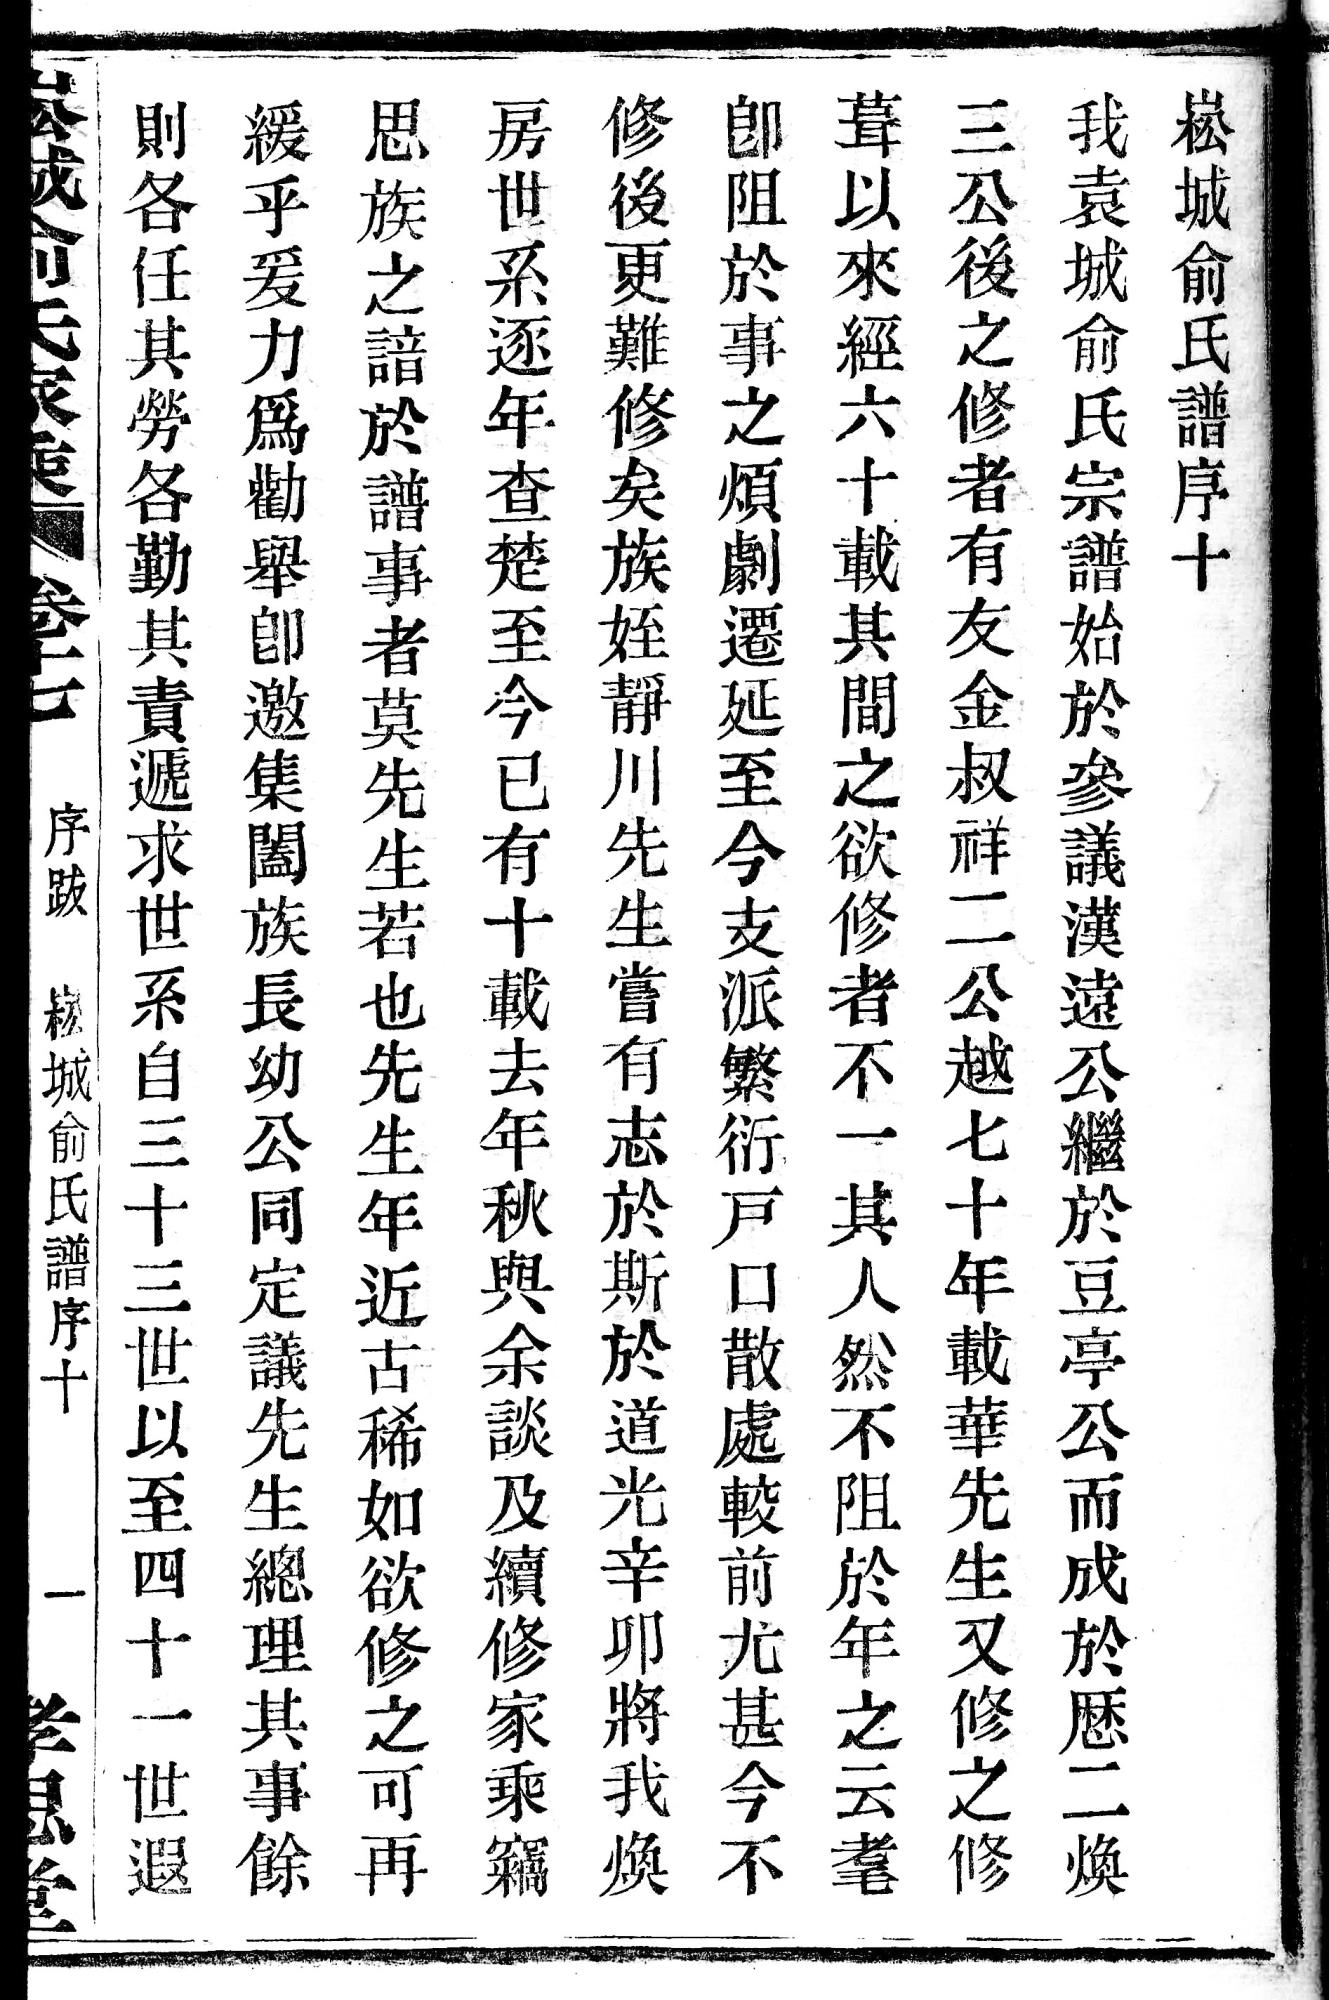 崧城俞氏譜序十
我袁城俞氏宗譜始於參議漢遠公繼於豆亭公而成於歷二煥
三公後之修者有友金叔祥二公越七十年載華先生又修之修
葺以來經六十載其間之欲修者不一其人然不阻於年之云耄
卽阻於事之煩劇遷延至今支派繁衍戸口散處較前尤甚今不
修後更難修矣族姪靜川先生嘗有志於斯於道光辛卯將我煥
房世系逐年查楚至今已有十載去年秋與余談及續修家乘竊
思族之諳於譜事者莫先生若也先生年近古稀如欲修之可再
緩乎爰力爲勸舉卽邀集闔族長幼公同定議先生總理其事餘
則各任其勞各勤其責遞求世系自三十三世以至四十一世遐
崧城俞氏家乘 卷十七 序跋 崧城俞氏譜序十 一 孝思堂